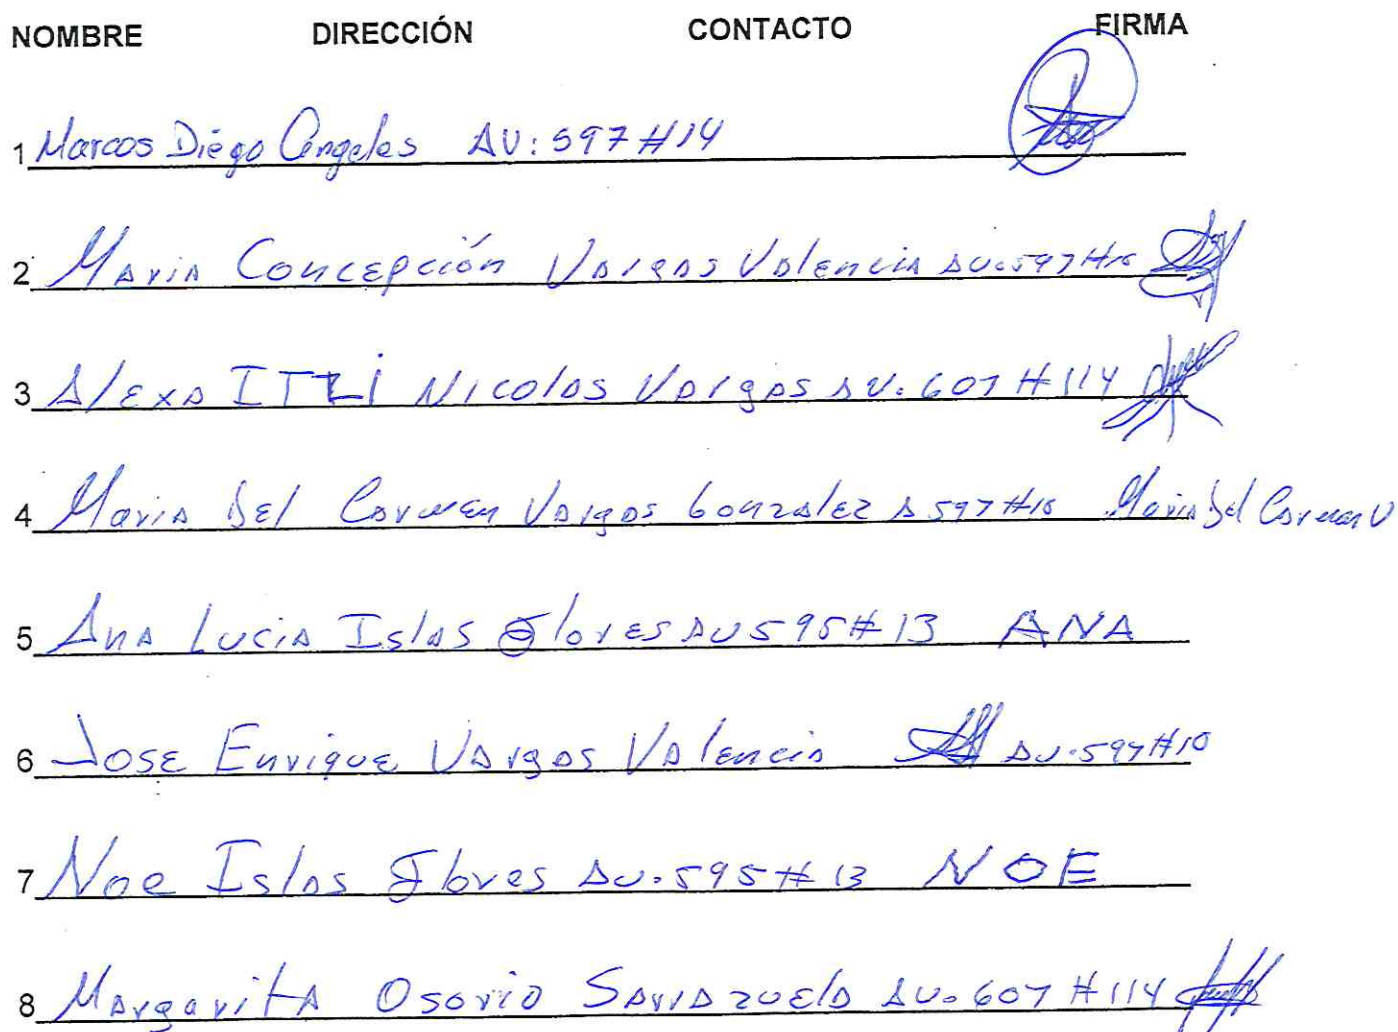 NOMBRE DIRECCIÓN CONTACTO FIRMA
1 Marcos Diego Angeles AV: 597 #14
2 Maria Concepción Vargas Valencia AV. 597 #10
3 Alexa ITZLI Nicolas Vargas AV. 607 #114
4 Maria Del Carmen Vargas Gonzalez A 597 #10 Maria Del Carmen V
5 Ana Lucia Islas Flores AV 595 #13 ANA
6 Jose Enrique Vargas Valencia AV. 597 #10
7 Noe Islas Flores AV. 595 #13 NOE
8 Margarita Osorio AV. 607 #114